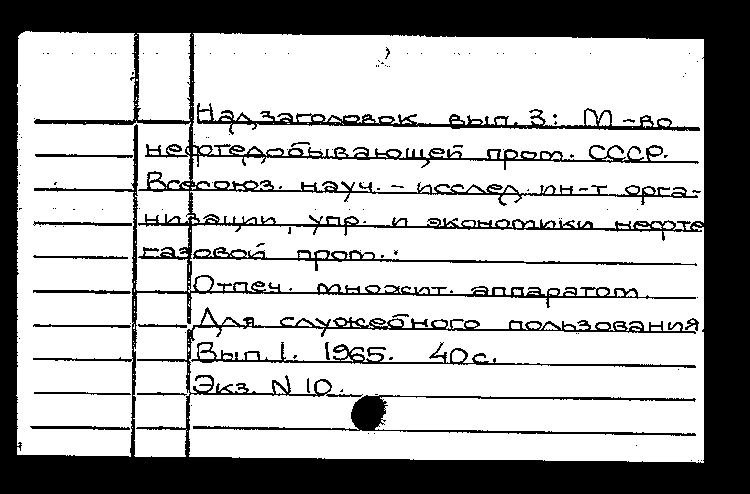 2
Надзаголовок вып. 3: М-во
нефтедобывающей пром. СССР.
Всесоюз. науч.-исслед. ин-т орга-
низации, упр. и экономики нефте
газовой пром.
Отпеч. множит. аппаратом.
Для служебного пользования.
Вып. 1. 1965. 40с.
Экз. N 10.